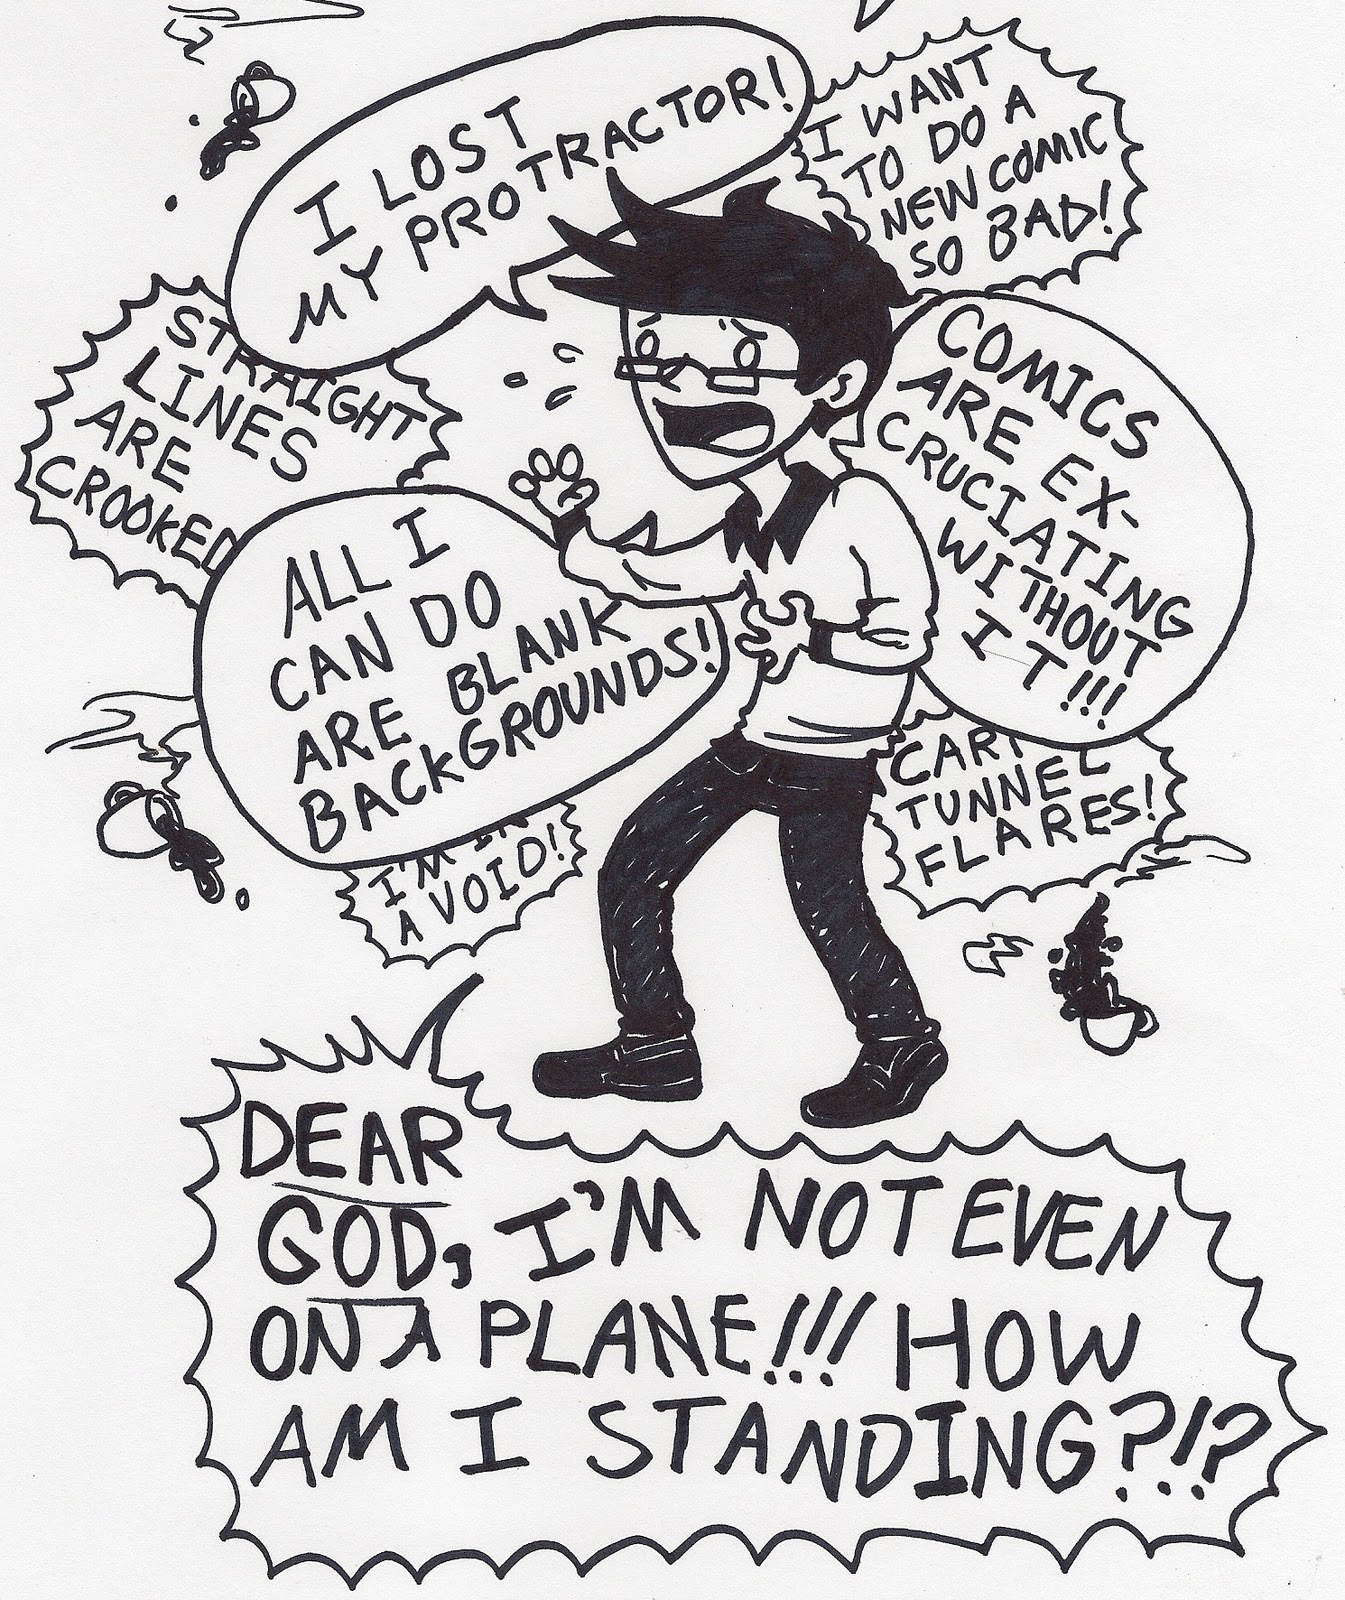 I LOST
MY PROTRACTOR!
I WANT
TO DO A
NEW COMIC
SO BAD!
STRAIGHT
LINES
ARE
CROOKED
COMICS
ARE EX-
CRUCIATING
WITHOUT
IT!!!
ALL I
CAN DO
ARE BLANK
BACKGROUNDS!
I'M IN
A VOID!
TUNNEL
FLARES!
DEAR
GOD, I'M NOT EVEN
ON A PLANE!!! HOW
AM I STANDING?!?